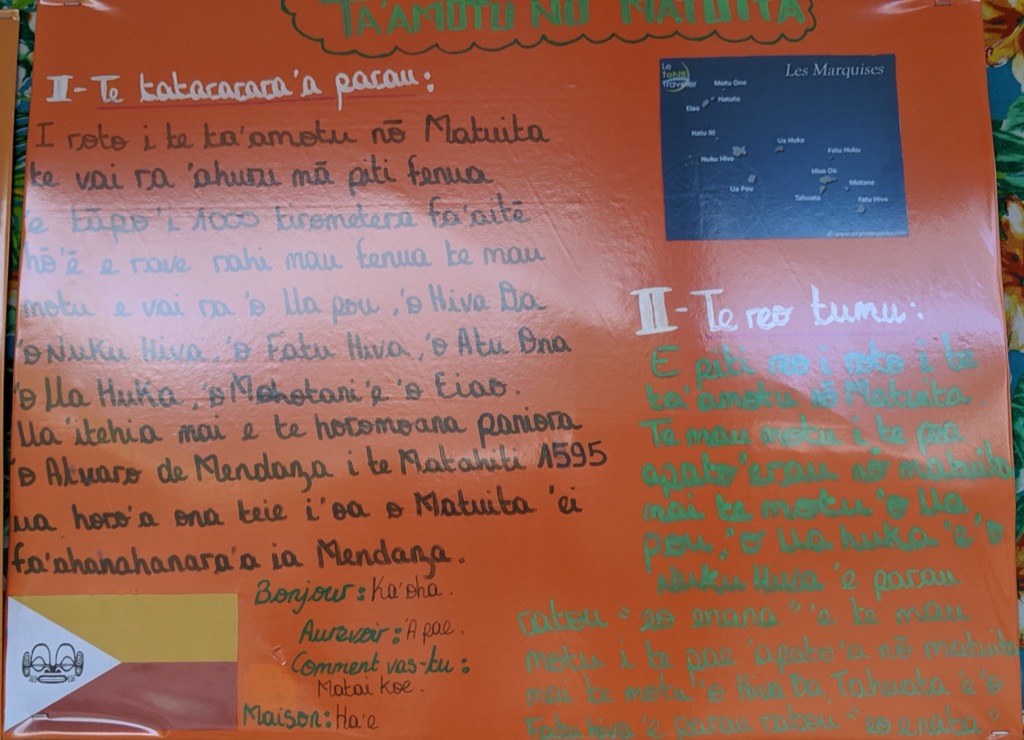 TA'AMOTU NO MATUITA
I - Te tatararara'a parau :
I roto i te ta'amotu nō Matuita
te vai ra 'ahuru mā piti fenua
e tāpo'i 1000 tirometera fa'aitē
hō'ē e rave rahi mau fenua te mau
motu e vai ra 'o Ua pou, 'o Hiva Oa
'o Nuku Hiva, 'o Fatu Hiva, 'o Atu Ona
'o Ua Huka, 'o Mohotani 'e 'o Eiao.
Ua 'itehia mai e te horomoana paniora
'o Alvaro de Mendanza i te Matahiti 1595
ua horo'a ona teie i'oa o Matuita 'ei
fa'ahanahanara'a ia Mendanza.
Bonjour : Ka'oha.
Aurevoir : 'A pae.
Comment vas-tu :
Motai Koe.
Maison : Ha'e
Le Tahiti Traveler
Les Marquises
Motu One
Hatutu
Eiao
Hatu Iti
Nuku Hiva
Ua Huka
Ua Pou
Fatu Huku
Hiva Oa
Motane
Tahuata
Fatu Hiva
II - Te reo tumu :
E piti reo i roto i te
ta'amotu nō Matuita
Te mau motu i te pae
apato'erau nō matuita
mai te motu 'o Ua
pou, 'o Ua huka 'e 'o
Nuku Hiva 'e parau
ratou "eo enana" 'e te mau
motu i te pae 'apato'a nō matuita
mai te motu 'o Hiva Oa, Tahuata 'e 'o
Fatu hiva 'e parau ratou "eo enata"